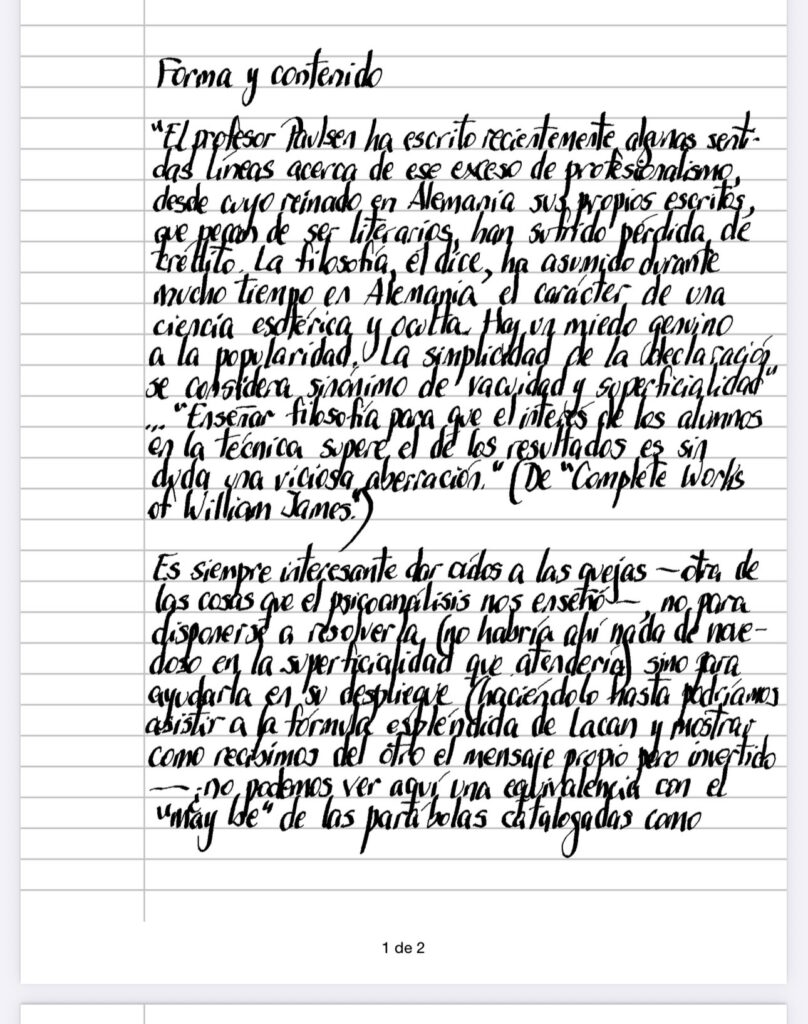 Forma y contenido
"El profesor Paulsen ha escrito recientemente algunas senti-
das líneas acerca de ese exceso de profesionalismo,
desde cuyo reinado en Alemania sus propios escritos,
que pecan de ser literarios, han sufrido pérdida de
crédito. La filosofía, él dice, ha asumido durante
mucho tiempo en Alemania el carácter de una
ciencia esotérica y oculta. Hay un miedo genuino
a la popularidad. La simplicidad de la declaración
se considera sinónimo de vacuidad y superficialidad"
... "Enseñar filosofía para que el interés de los alumnos
en la técnica supere el de los resultados es sin
duda una viciosa aberración." (De "Complete Works
of William James.")
Es siempre interesante dar oídos a las quejas —otra de
las cosas que el psicoanálisis nos enseñó—, no para
disponerse a resolverla, (no habría ahí nada de nove-
doso en la superficialidad que atendería) sino para
ayudarla en su despliegue (haciéndolo hasta podríamos
asistir a la fórmula espléndida de Lacan y mostrar
como recibimos del otro el mensaje propio pero invertido
— ¿no podemos ver aquí una equivalencia con el
"may be" de las parábolas catalogadas como
1 de 2